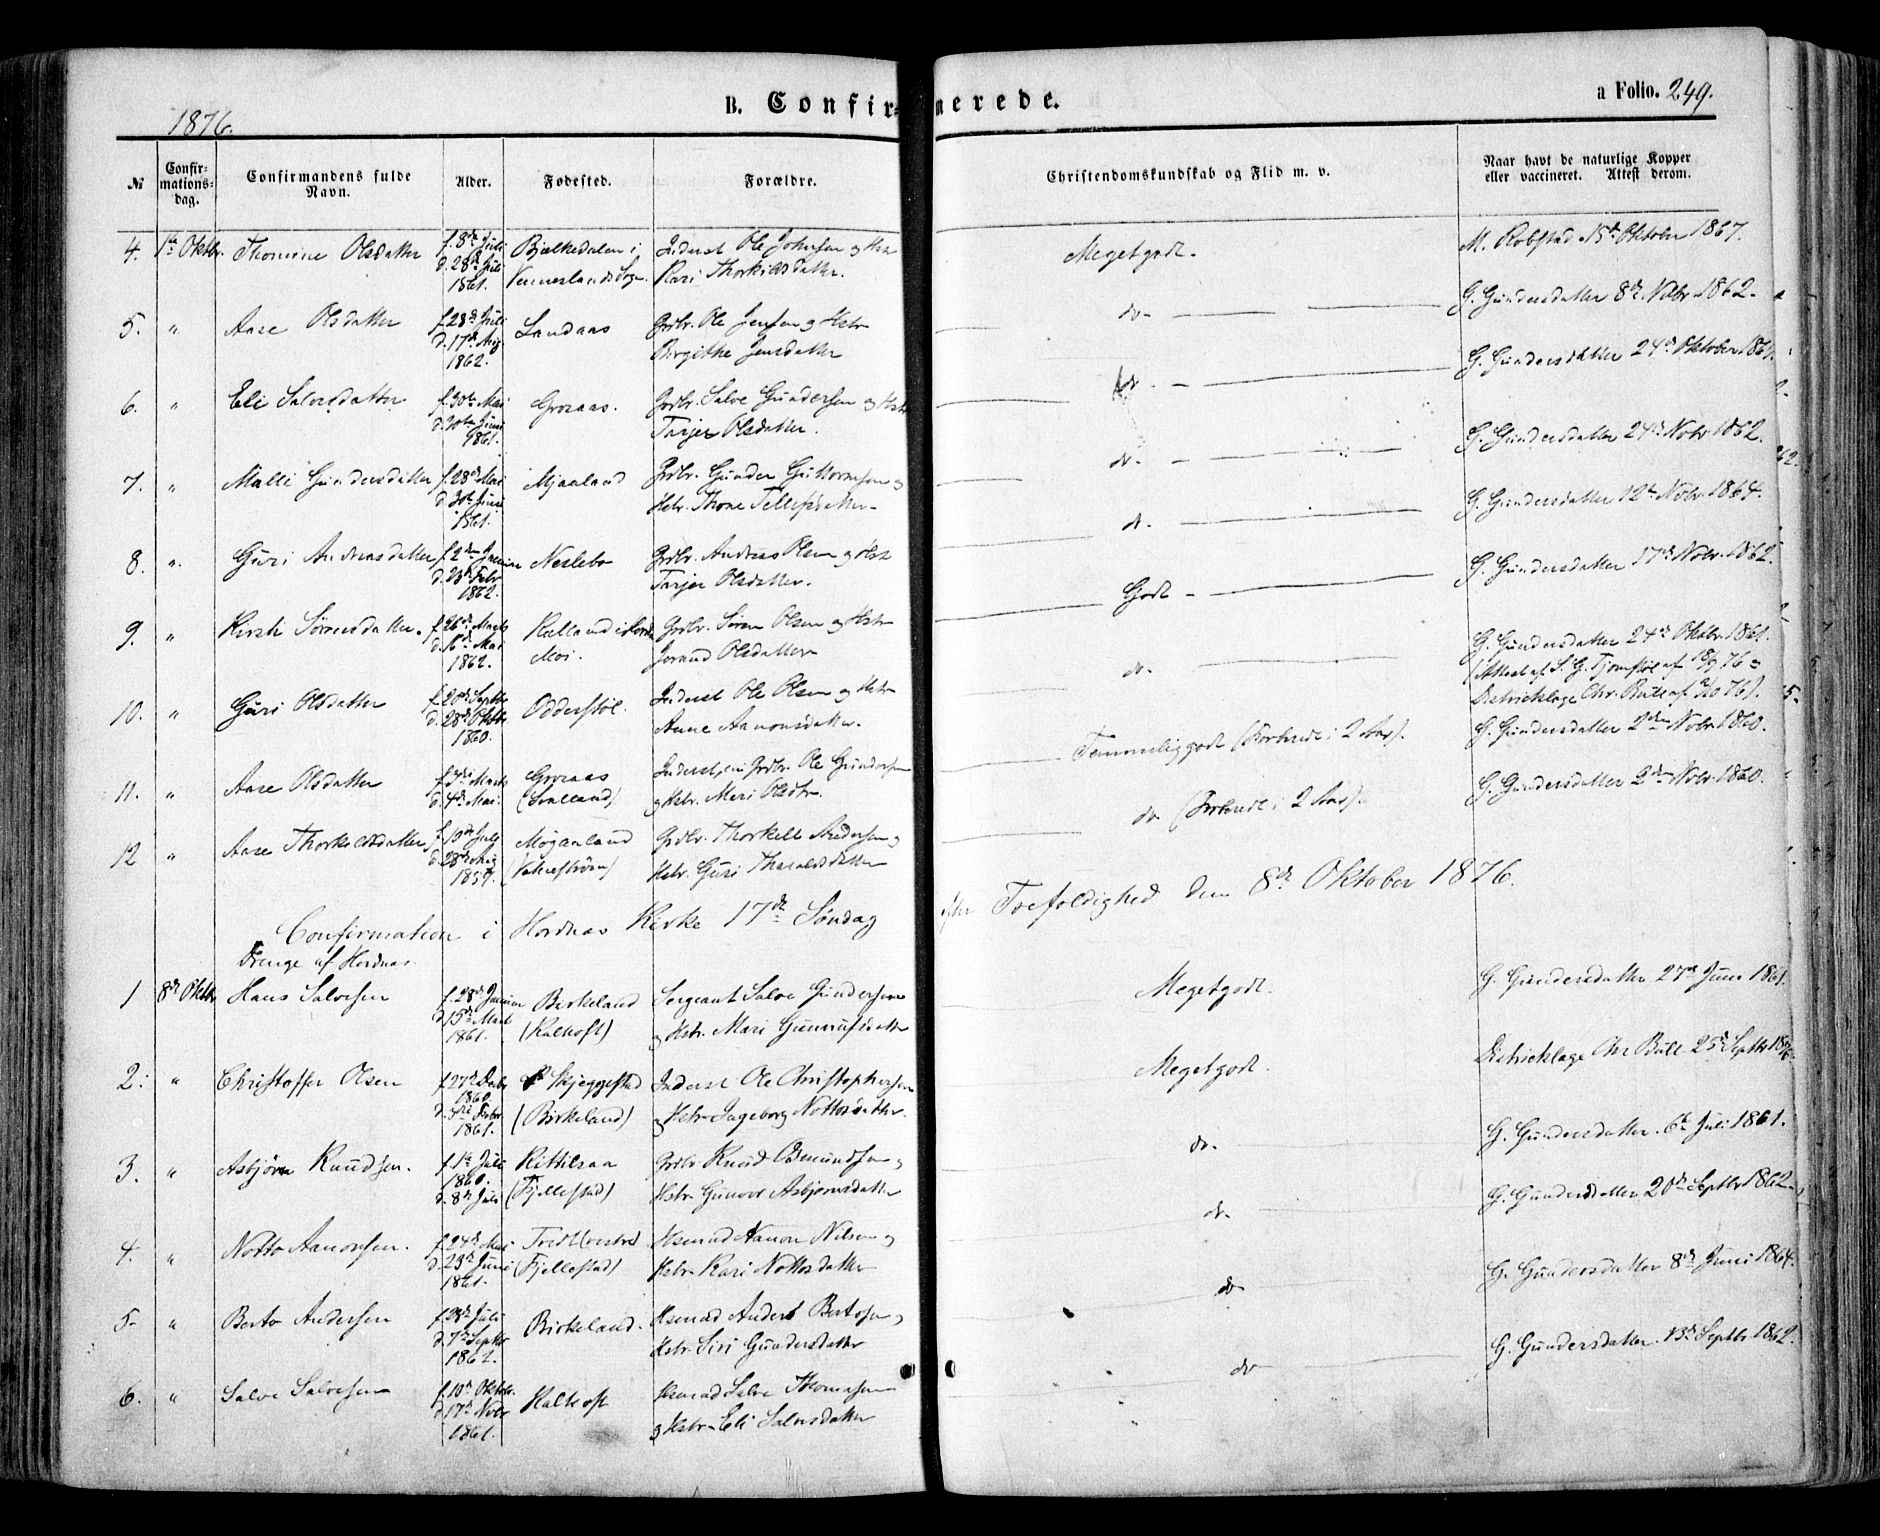 1876.
B. Confirmerede.
a Folio. 249.
№
Confirmations-dag.
Confirmandens fulde Navn.
Alder.
Fødested.
Forældre.
Christendomskundskab og Flid m. v.
Naar havt de naturlige Kopper eller vaccineret. Attest derom.
4. 1ste Oktbr. Thomine Olsdatter f. 8de Juli d. 28de Juli 1861. Bjelkedalen i Venneslands Sogn. Inderst Ole Johnsen og Hstr Kari Thorkildsdatter. Megetgodt. M. Robstad 15de Oktober 1867.
5. " Aase Olsdatter f. 28de Juli d. 17de Aug 1862. Landaas Grdbr. Ole Jensen og Hstr Birgithe Jensdatter do- G. Gundersdatter 8de Novbr 1862.
6. " Eli Salvesdatter f. 30te Mai d. 30te Juni 1861. Groaas. Grdbr. Salve Gundersen og Hstr Tarjer Olsdatter. do. G. Gundersdatter 24de Oktober 1861.
7. " Malli Gundersdatter f. 28de Mai d. 30te Juni 1861. Mjaaland Grdbr. Gunder Guttormsen og Hstr. Thone Tellefsdatter- do- G. Gundersdatter 24de Novbr 1862.
8. " Guri Andreasdatter f. 2den Januar d. 23de Febr 1862. Neslebo Grdbr. Andreas Olsen og Hstr Tarjer Olsdatter. do- G. Gundersdatter 12te Novbr. 1864.
9. " Kirsti Sørensdatter. f. 26de Marts d. 16de Mai 1862. Kalland i Moi. Grdbr. Søren Olsen og Hstr Jorand Olsdatter Godt- G. Gundersdatter 17de Novbr. 1862.
10. " Guri Olsdatter f. 20de Septbr d. 28de Oktbr. 1860. Odderstøl. Inderst Ole Olsen og Hstr Anne Aanonsdatter. do- G. Gundersdatter 24de Oktbr. 1861.
(Attest af S. G. Tjomstøl af 18/9 76 og
Districtslæge Chr. Bull af /10 76).
11. " Aase Olsdatter f. 3die Marts d. 4de Mai. Groaas Inderst, Grdbr. Ole Gundersen og Hstr. Mari Olsdtr. Temmelig godt (Forberedt i 2 Aar). G. Gundersdatter 2den Novbr. 1860.
12 " Aase Thorkildsdatter f. 19de Juli d. 28de Aug 1859. Mogaaland Grdbr. Thorkell Andersen og Hstr. Guri Tharaldsdatter do (Forberedt i 2 Aar). G. Gundersdatter 2den Novbr. 1860.
Confirmation i Hordnæs Kirke 17de Søndag efter Trefoldighed den 8de Oktober 1876.
Drenge af Hordnæs.
1 8de Oktbr Hans Salvesen f. 28de Januar d. 15de Marts 1861. Birkeland Sergeant Salve Gundersen og Hstr. Mari Gunnufsdatter Megetgodt. G. Gundersdatter 27de Juni 1861.
2. " Christoffer Olsen f. 27de Decbr 1860. d. 3die Febr 1861. Skjeggestad (Birkeland) Inderst Ole Christophersen og Hstr. Ingeborg Nottosdatter. Megetgodt. Districtslæge Chr Bull 25de Septbr 1876.
3. " Asbjørn Knudsen. f. 1ste Juli 1860. d. 8de Juli Kittilsaa (Fjellestad) Grdbr Knud Osmundsen og Hstr. Gunvor Asbjørnsdatter do- G. Gundersdatter. 6te Juli 1861.
4. " Notto Aanonsen. f. 24de Mai d. 23de Juni 1861. Tvedt (vestre) (Fjellestad) Husmand Aanon Nilsen og Hstr Kari Nottosdatter do- G. Gundersdatter 20de Septbr 1862.
5- " Berto Andersen f. 28de Juli d. 7de Septbr 1862. Birkeland. Husmand Anders Bertosen og Hstr. Siri Gundersdatter do- G. Gundersdatter 8de Juni 1864.
6. " Salve Salvesen f. 10de Oktbr. d. 17de Novbr 1861. Kaltoft Husmand Salve Thomassen og Hstr- Eli Salvesdatter do G. Gundersdatter. 13de Septbr 1862.